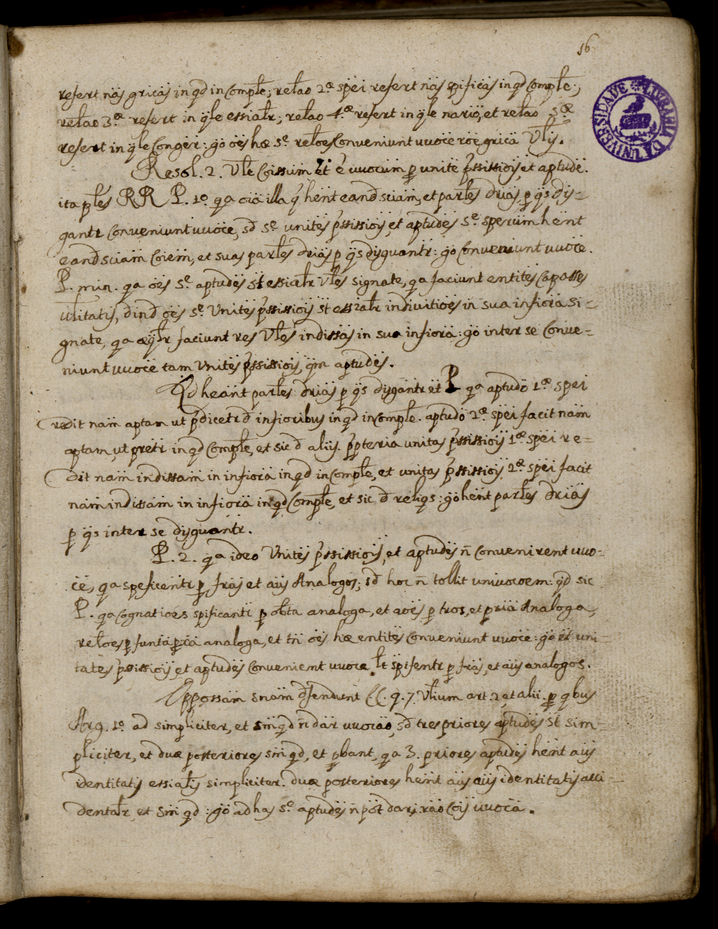 16
refert nãs gricas in qd incomplẽ; relao 2.ª spẽi refert nãs spificas in qd complẽ;
relao 3.ª refert in qle essialr; relao 4.ª refert in qle nariõ, et relao 5.ª
refert in qle Conger: gõ oẽs hæ 5.º relões Conveniunt vuoce rõe grica Vlis.
Resol. 2. Vle Coissum et ẽ vuocum p unitẽ pssissiois, et aptudẽ.
ita ples RR P. 1.º qa oia illa q hent eand sciam, et parles drias p qs dis-
gantr Conveniunt vuoce, sd 5.º unites pssissiois et aptudes 5.º sperum hent
eand sciam Coiem, et suas parles drias p qs disguantr: gõ Conveniunt vuoce.
P. min. qa oẽs 5.º aptudes st essialr Vles signate, qa faciunt entites Capasses
ulitatis, dind oẽs 5.º Unites pssissiois st essialr indivitioẽs in sua infiora si-
gnate, qa aqlr faciunt res Vles indissas in sua infiora: gõ inter se Conve-
niunt vuoce tam Unites pssissiois, qm aptudes.
Qd heant parles drias p qs disgantr et P qa aptudo 1.ª spẽi
redit nam aptam ut pdicetr d infioribus in qd incomple. aptudo 2.ª spẽi facit nam
aptam, ut pretr in qd Comple, et sic d aliis. ppteria unitas pssissiois 1.ª spẽi re-
dit nam indissam in infiora in qd incomple, et unitas pssissiois 2.ª spẽi facit
nam indissam in infiora in qd Comple, et sic d reliqs: gõ hent parles drias
p qs inter se disguantr.
P. 2. qa ideo Unites pssissiois, et aptudes ñ Convenirent vuo-
ce, qa speficentr p fras et aiis Analogos; sd hoc ñ tollit univocoem: qd sic
P. qa Cognatioẽs spificantr p obta analoga, et aoẽs p tros, et pria Analoga,
reloẽs p funta pcia analoga, et tñ oẽs hæ entites Conveniunt vuoce: gõ et uni-
tates pssissiois et aptudes Convenient vuoce lt spifentr p fras, et aiis analogos.
Oppossam snam dfendunt CC. q. 7. Vlium art. 2. et alii. p qbus
Arg. 1.º ad simpliciter, et sm qd ñ dar vuocao, sd tres priores aptudes st sim-
pliciter, et duæ posteriores sm qd, et pbant, qa 3. priores aptudes hent aiis
identitatis essialis simpliciter. duæ posteriores hent aiis aiis identitatis acci-
dentalr et sm qd: gõ ad has 5.º aptudes ñ pot dari rão Cois vuoca.
LIVRARIA DA UNIVERSIDADE